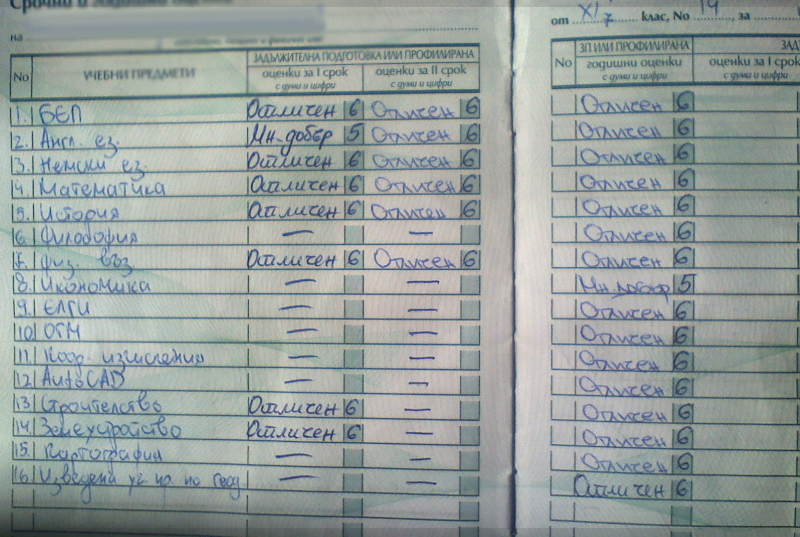 Срочни и годишни оценки
на
ЗАДЪЛЖИТЕЛНА ПОДГОТОВКА ИЛИ ПРОФИЛИРАНА
No УЧЕБНИ ПРЕДМЕТИ оценки за I срок оценки за II срок
с думи и цифри с думи и цифри
1. БЕЛ Отличен 6 Отличен 6
2. Англ. ез. Мн. добър 5 Отличен 6
3. Немски ез. Отличен 6 Отличен 6
4. Математика Отличен 6 Отличен 6
5. История Отличен 6 Отличен 6
6. Философия — —
7. Физ. въз. Отличен 6 Отличен 6
8. Икономика — —
9. ЕЛГИ — —
10. ОГМ — —
11. Коорд. изчисления — —
12. AutoCAD — —
13. Строителство Отличен 6 —
14. Земеустройство Отличен 6 —
15. Картография — —
16. уч. пр. по геод. — —
от XI г клас, No 19, за
ЗП ИЛИ ПРОФИЛИРАНА ЗАД
No годишни оценки оценки за I срок
с думи и цифри с думи и цифри
Отличен 6
Отличен 6
Отличен 6
Отличен 6
Отличен 6
Отличен 6
Отличен 6
Мн. добър 5
Отличен 6
Отличен 6
Отличен 6
Отличен 6
Отличен 6
Отличен 6
Отличен 6
Отличен 6